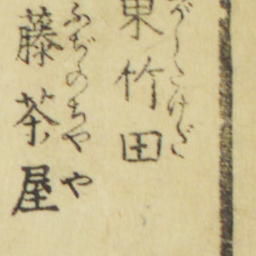 東竹田
がしたけだ
藤茶屋
ふぢのちやや